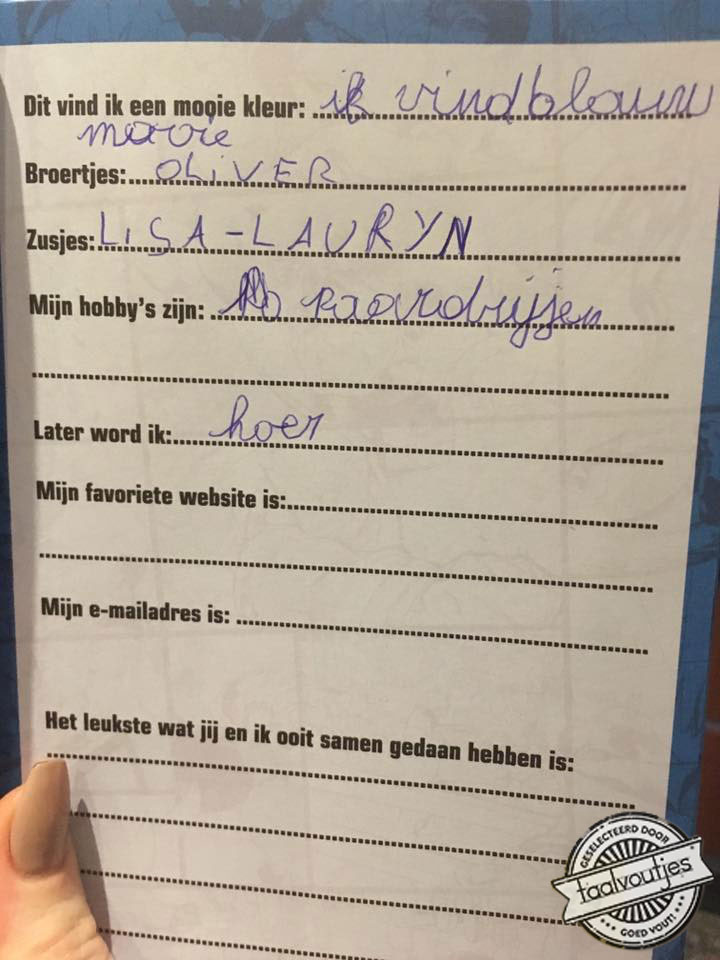 Dit vind ik een mooie kleur: ik vind blauw
mooie
Broertjes: OLIVER
Zusjes: LISA-LAURYN
Mijn hobby's zijn: paardrijjen
Later word ik: hoer
Mijn favoriete website is:
Mijn e-mailadres is:
Het leukste wat jij en ik ooit samen gedaan hebben is:
GESELECTEERD DOOR
taalvoutjes
GOED VOUT!